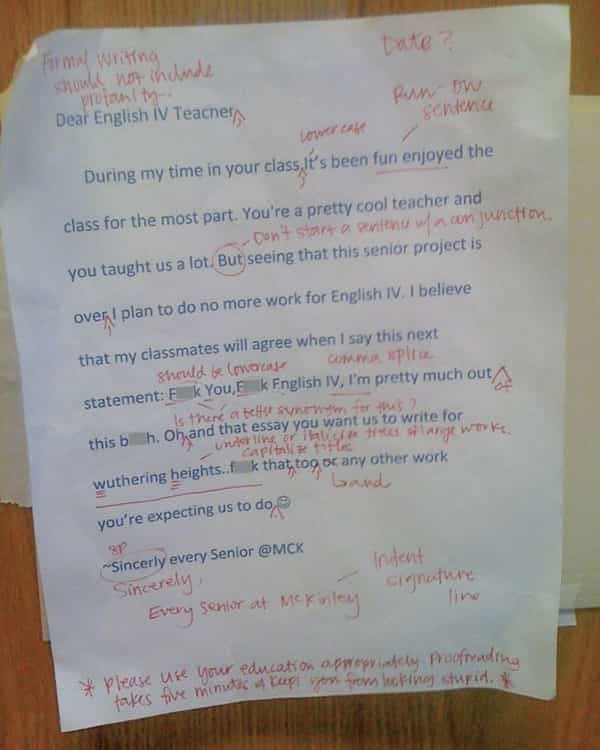 Formal writing
should not include
profanity..
Date?
Run-on
sentence
Dear English IV Teacher
lowercase
During my time in your class,It's been fun enjoyed the
class for the most part. You're a pretty cool teacher and
Don't start a sentence w/ a conjunction.
you taught us a lot. But seeing that this senior project is
over I plan to do no more work for English IV. I believe
that my classmates will agree when I say this next
should be lowercase
comma splice
statement: F k You,F k English IV, I'm pretty much out
of
Is there a better synonym for this?
this b h. Oh and that essay you want us to write for
underline or italicize titles of large works.
capitalize titles
wuthering heights..f k that too or any other work
and
you're expecting us to do ☺
SP
~Sincerly every Senior @MCK
Sincerely,
Every senior at McKinley
Indent
signature
line
* Please use your education appropriately. Proofreading
takes five minutes & keeps you from looking stupid. *